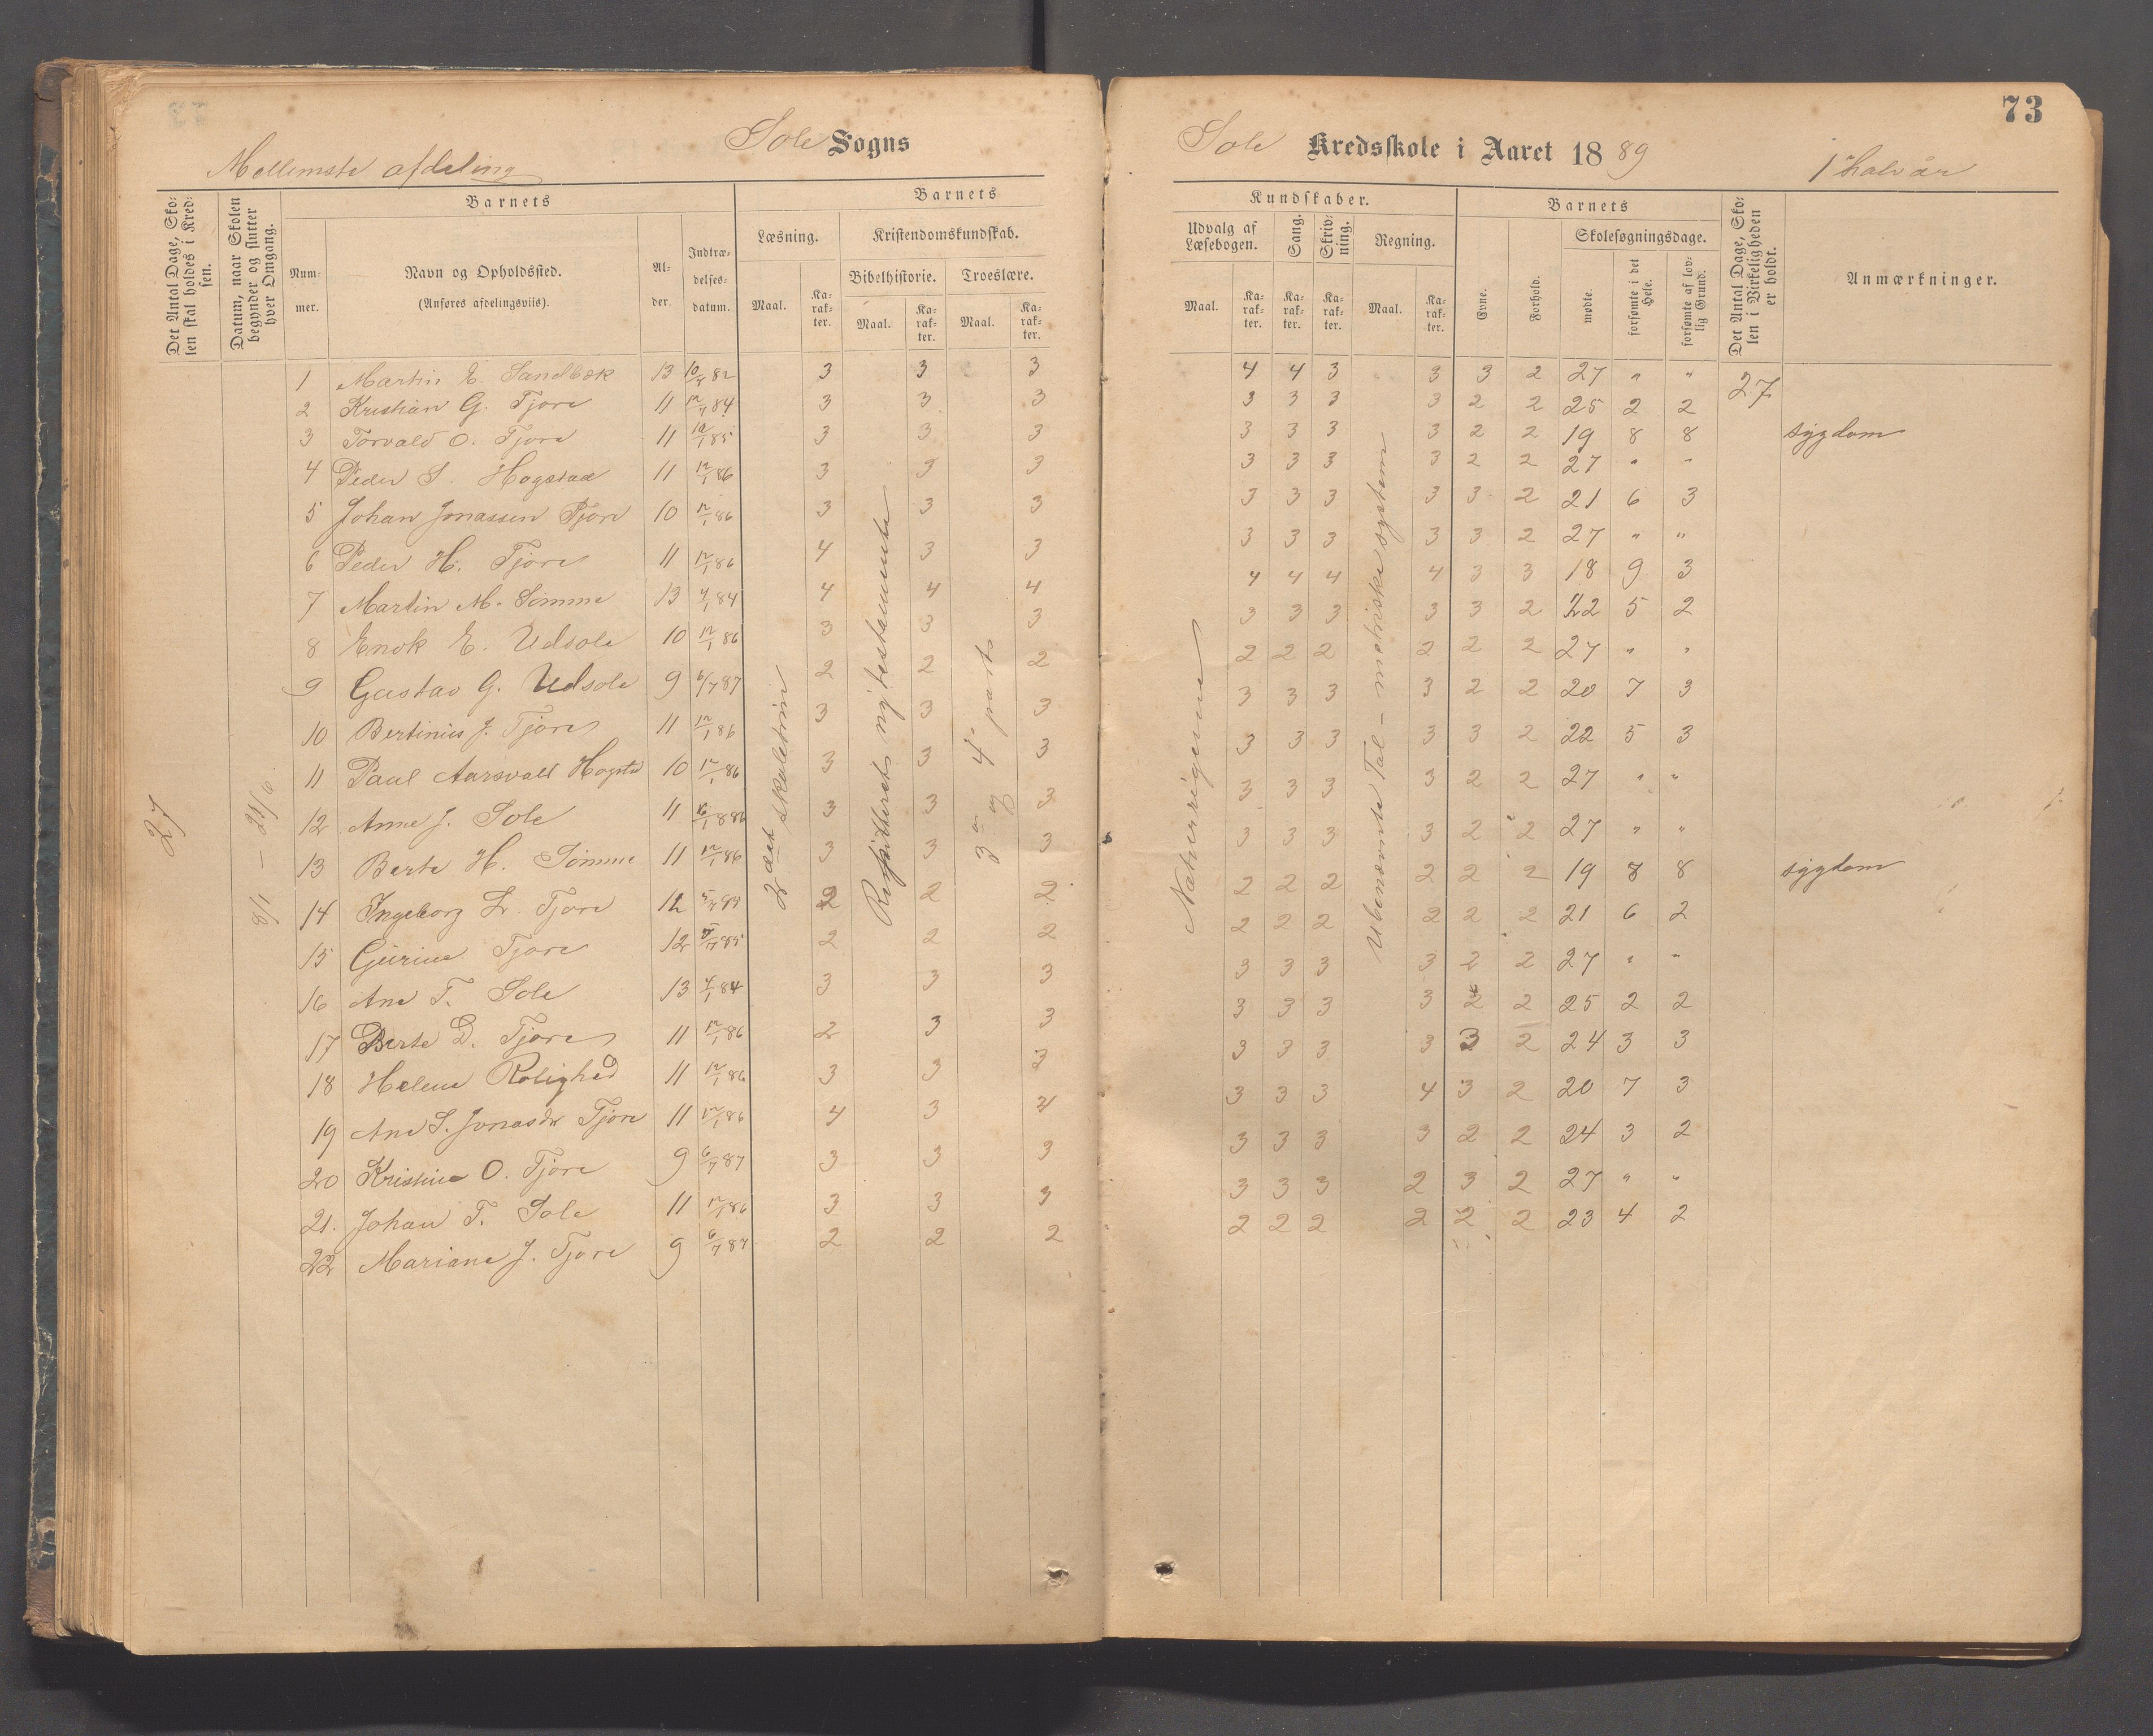 73
Sole Sogns
Sole Kredsskole i Aaret 1889
Mellemste afdeling
1ste halvår
Det Antal Dage, Skolen skal holdes i Kredsen.
Datum, naar Skolen begynder og slutter hver Omgang.
Barnets
Nummer.
Navn og Opholdssted.
(Anføres afdelingsviis).
Alder.
Indtrædelsesdatum.
Barnets
Læsning.
Kristendomskundskab.
Bibelhistorie.
Troeslære.
Maal.
Karakter.
Maal.
Karakter.
Maal.
Karakter.
Kundskaber.
Udvalg af Læsebogen.
Sang.
Skrivning.
Regning.
Maal.
Karakter.
Karakter.
Karakter.
Maal.
Karakter.
Barnets
Evne.
Forhold.
Skolesøgningsdage.
mødte.
forsømte i det Hele.
forsømte af lovlig Grund.
Det Antal Dage, Skolen i Virkeligheden er holdt.
Anmærkninger.
27
8/1 – 21/6
2det skoletrin
ny testamente
3die og 4de part
Naturrigerne
Ubenævnte Tal – metriske system
27
1 Martin E. Sandbæk 13 82 3 3 3 4 4 3 3 3 2 27 " "
2 Kristian G. Tjora 11 84 3 3 3 3 3 3 3 2 2 25 2 2
3 Torvald O. Tjora 11 85 3 3 3 3 3 3 3 2 2 19 8 8 sygdom
4 Peder S. Hogstad 11 12/1 86 3 3 3 3 3 3 3 2 2 27 " "
5 Johan Jonassen Tjora 10 12/1 86 3 3 3 3 3 3 3 3 2 21 6 3
6 Peder H. Tjora 11 12/1 86 4 3 3 3 3 3 3 3 2 27 " "
7 Martin M. Sømme 13 4/1 84 4 4 4 4 4 4 4 3 3 18 9 3
8 Enok E. Udsola 10 12/1 86 3 3 3 3 3 3 3 3 2 22 5 2
9 Gustav G. Udsola 9 6/7 87 2 2 2 2 2 2 2 2 2 27 " "
10 Bertinius J. Tjora 11 12/1 86 3 3 3 3 3 3 3 2 2 20 7 3
11 Paul Aarsvall Hogstad 10 12/1 86 3 3 3 3 3 3 3 3 2 22 5 3
12 Anne J. Sole 11 86 3 3 3 3 3 3 3 2 2 27 " "
13 Berta H. Sømme 11 12/1 86 3 3 3 3 3 3 3 2 2 27 " "
14 Ingeborg L. Tjora 12 2 2 2 2 2 2 2 2 2 19 8 8 sygdom
15 Gurine Tjora 12 85 2 2 2 2 2 2 2 2 2 21 6 2
16 Ane T. Sole 13 4/1 84 3 3 3 3 3 3 3 2 2 27 " "
17 Berte D. Tjora 11 12/1 86 2 3 3 3 3 3 3 2 2 25 2 2
18 Helene Rolighed 11 12/1 86 3 3 3 3 3 3 3 3 2 24 3 3
19 Ane S. Jonasdr Tjora 11 12/1 86 4 3 4 3 3 3 4 3 2 20 7 3
20 Kristine O. Tjora 9 6/7 87 3 3 3 3 3 3 3 2 2 24 3 2
21. Johan T. Sole 11 12/1 86 3 3 3 3 3 3 2 3 2 27 " "
22 Mariane J. Tjora 9 6/7 87 2 2 2 2 2 2 2 2 2 23 4 2